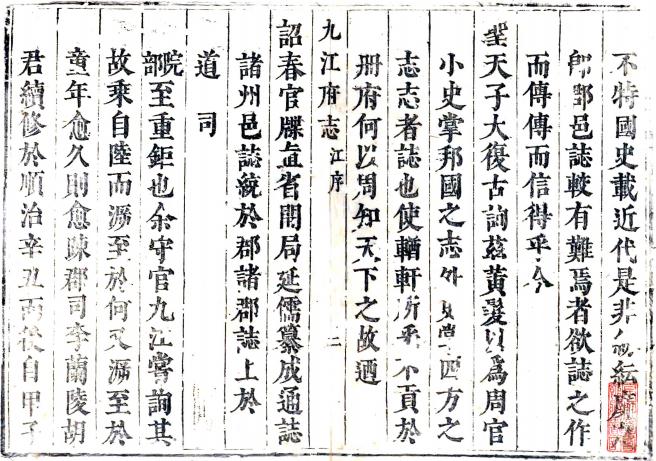 不特國史載近代是非紜
郡邑誌較有難焉者欲誌之作
而傳傳而信得乎今
聖天子大復古詢茲黃髮以為周官
小史掌邦國之志外史掌四方之
志志者誌也使輶軒所采不貢於
冊府何以周知天下之故迺
九江府志 江序 二
詔春官牒直省開局延儒纂成通誌
諸州邑誌統於郡諸郡誌上於
道司
部院至重鉅也余守官九江嘗詢其
故乘自陸而瀰至於何又瀰至於
童年愈久則愈踈郡司李蘭陵胡
君續修於順治辛丑而後自甲子